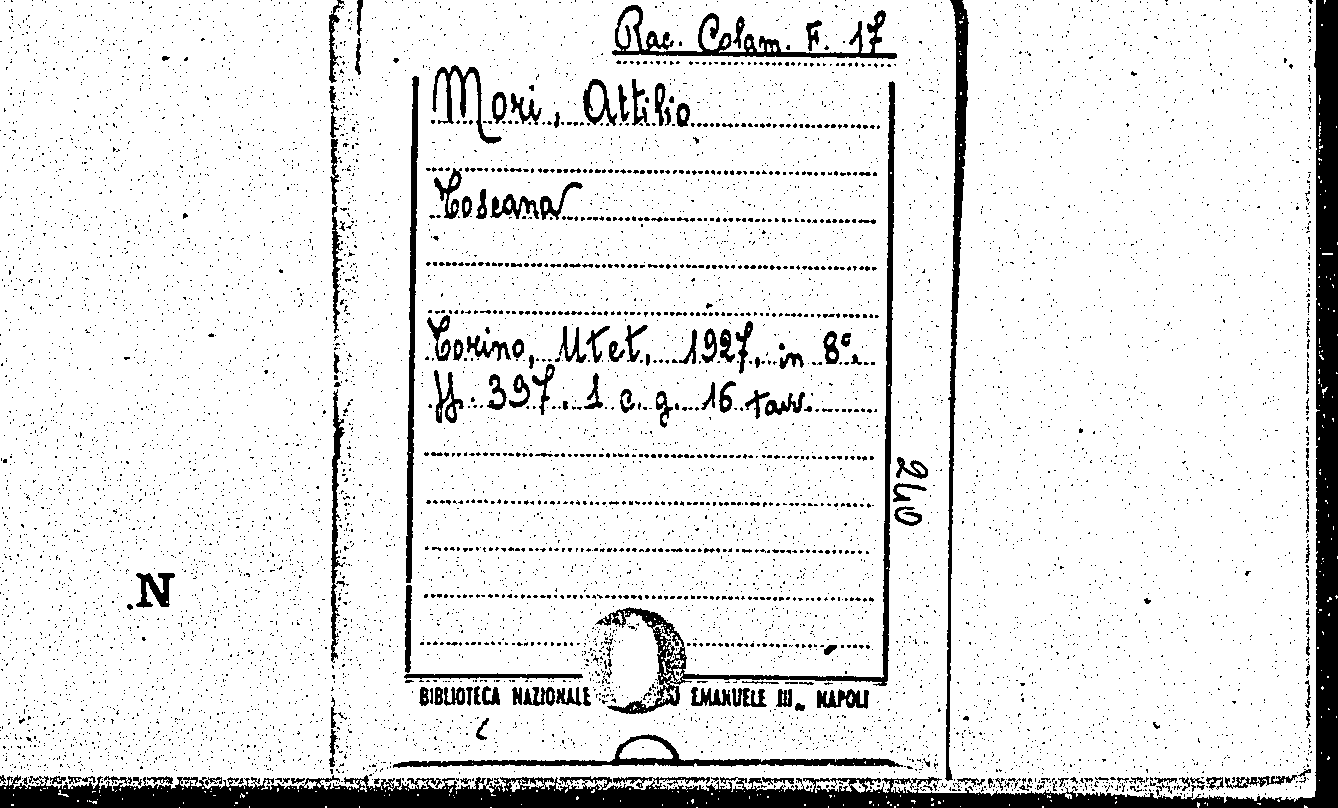 Rac. Colam. F. 17
Mori, Attilio
Toscana
Torino, Utet, 1927, in 8°.
ff. 397. 1 c. g. 16 tavv.
240
N
BIBLIOTECA NAZIONALE EMANUELE III_ NAPOLI